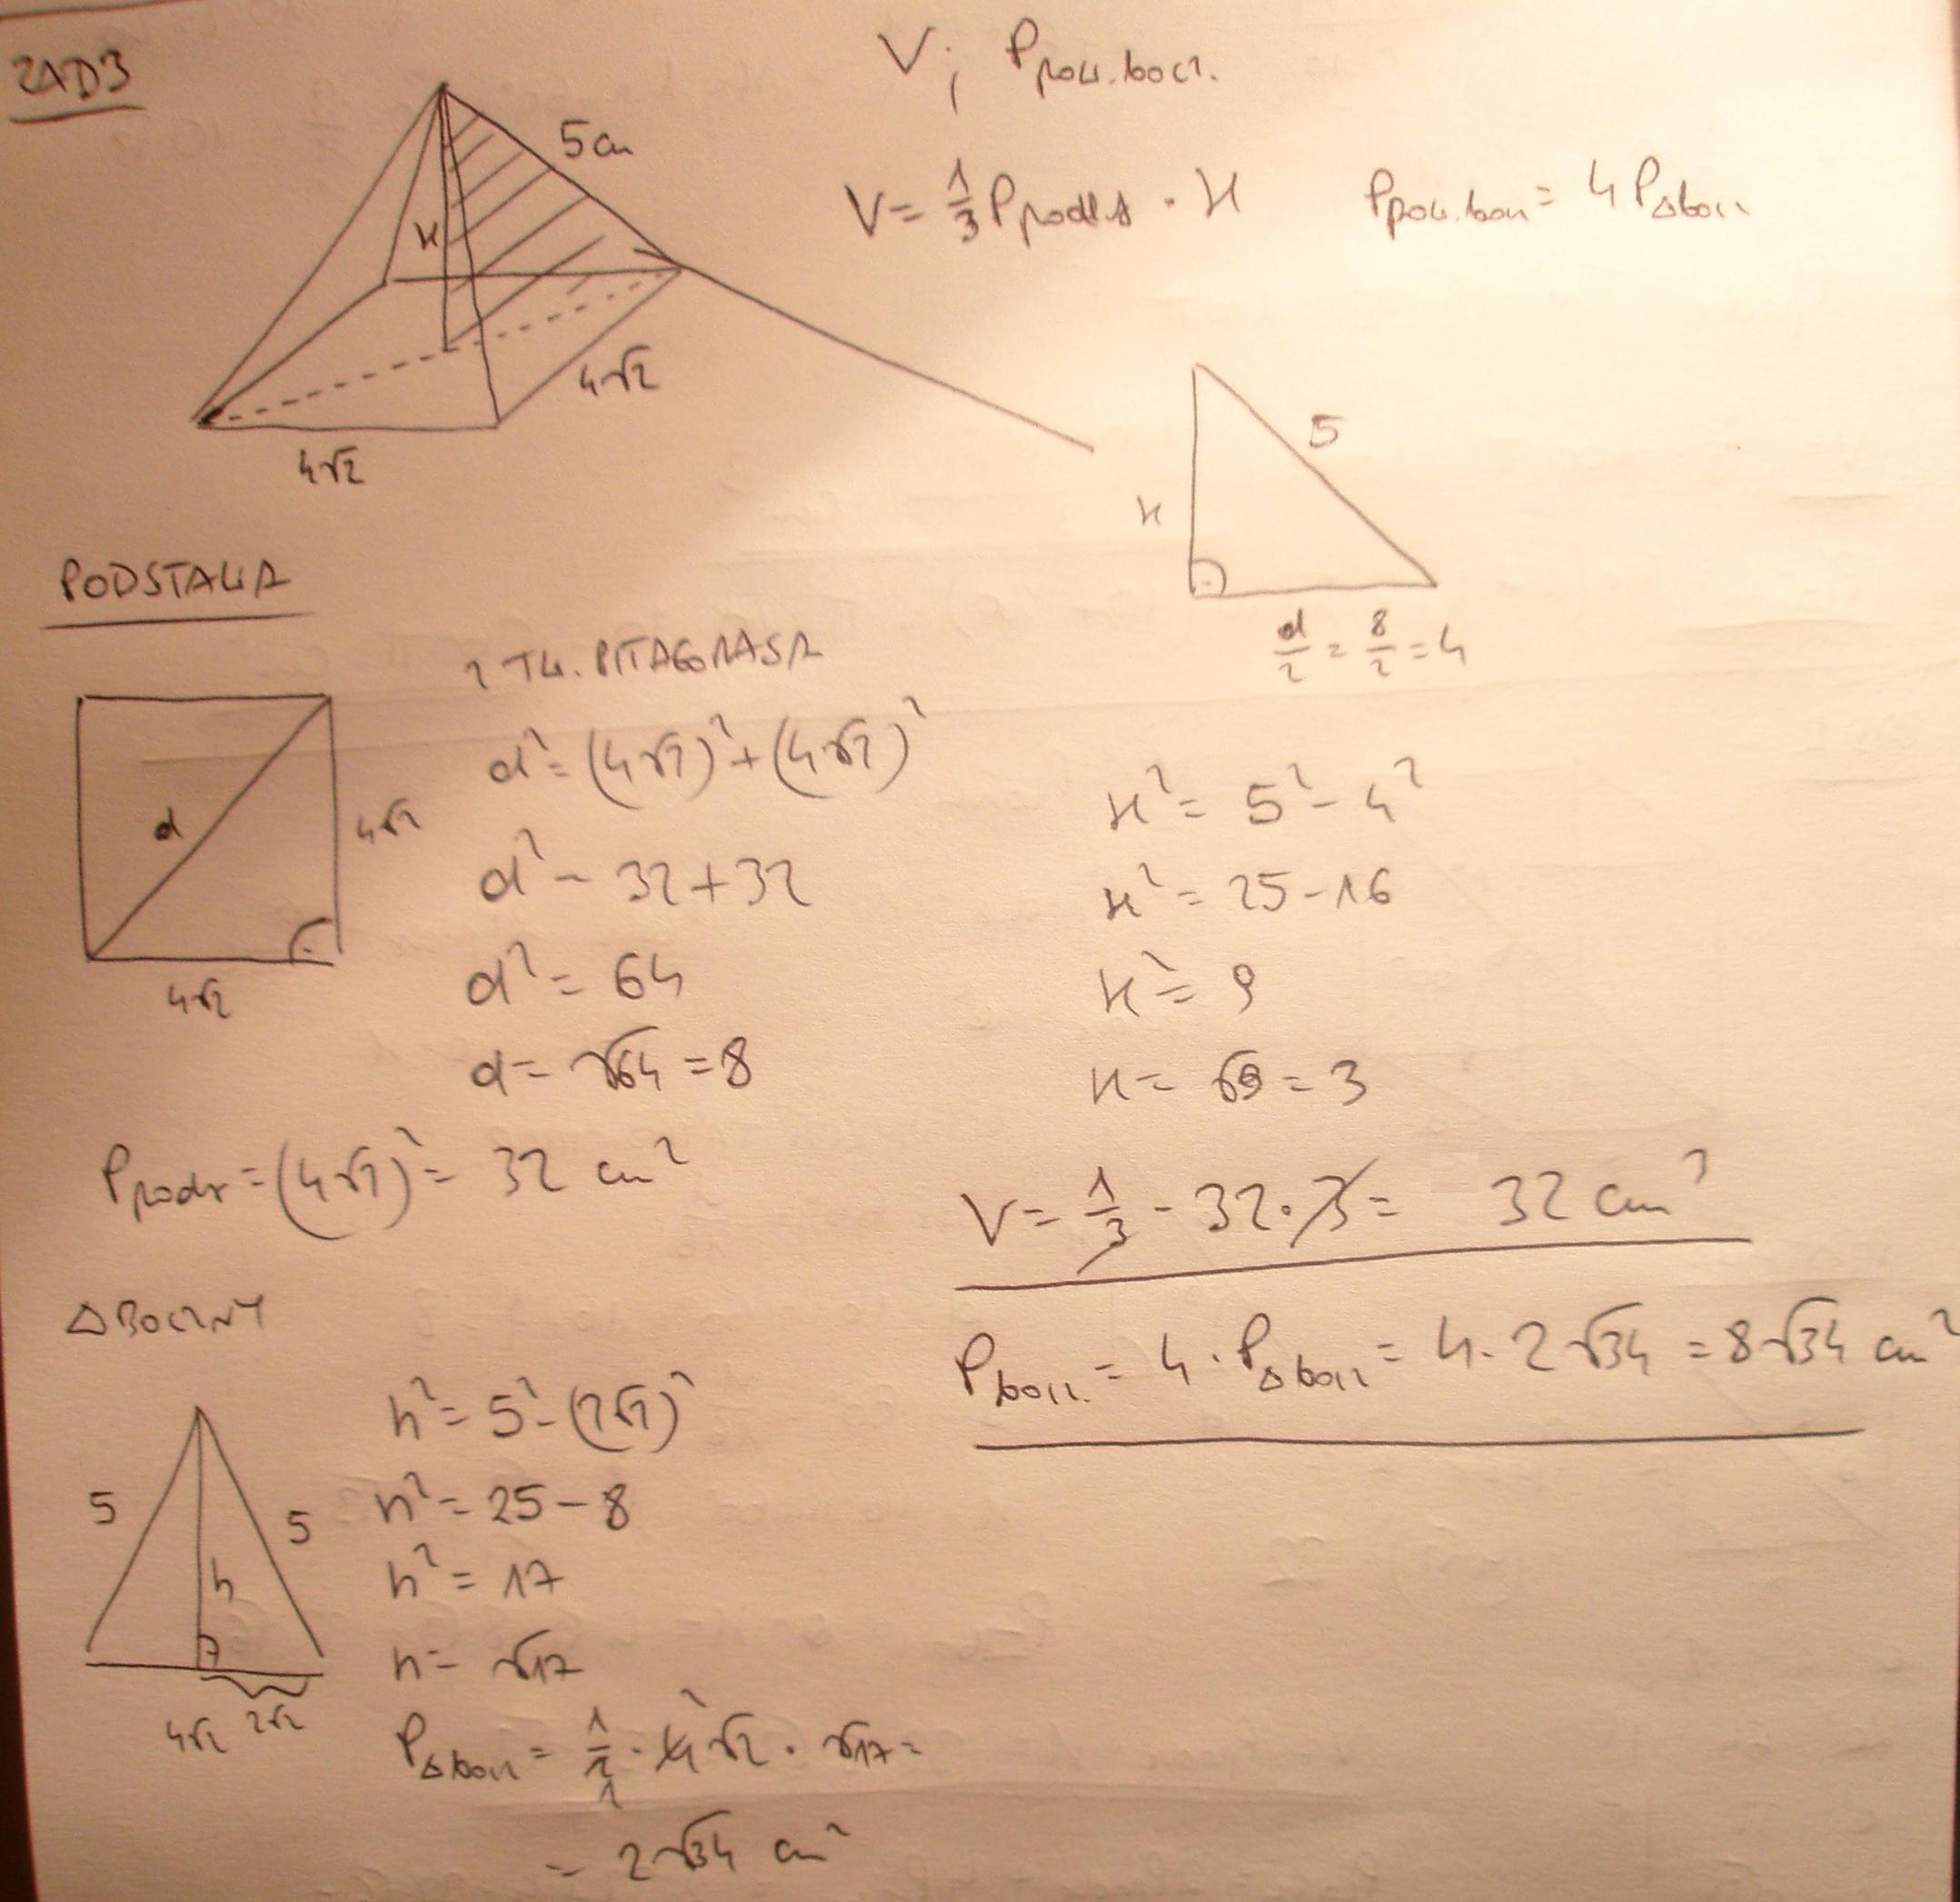 ZAD3
V; Ppow.bocz.
5cm
V = 1/3 Ppodst · H
Ppow.bocz = 4P△bocz
H
4√2
4√2
5
H
d/2 = 8/2 = 4
PODSTAWA
z TW. PITAGORASA
d
4√2
4√2
d² = (4√2)² + (4√2)²
d² = 32+32
d² = 64
d = √64 = 8
H² = 5² - 4²
H² = 25 - 16
H² = 9
H = √9 = 3
Ppodst = (4√2)² = 32 cm²
V = 1/3 · 32 · 3 = 32 cm³
Pbocz. = 4 · P△bocz = 4 · 2√34 = 8√34 cm²
△BOCZNY
5
5
h
4√2
2√2
h² = 5² - (2√2)²
h² = 25 - 8
h² = 17
h = √17
P△bocz = 1/2 · 4√2 · √17 =
= 2√34 cm²